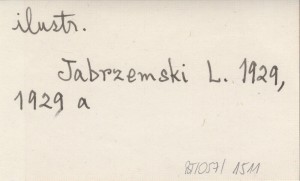 ilustr.
Jabrzemski L. 1929,
1929 a
/ 1511